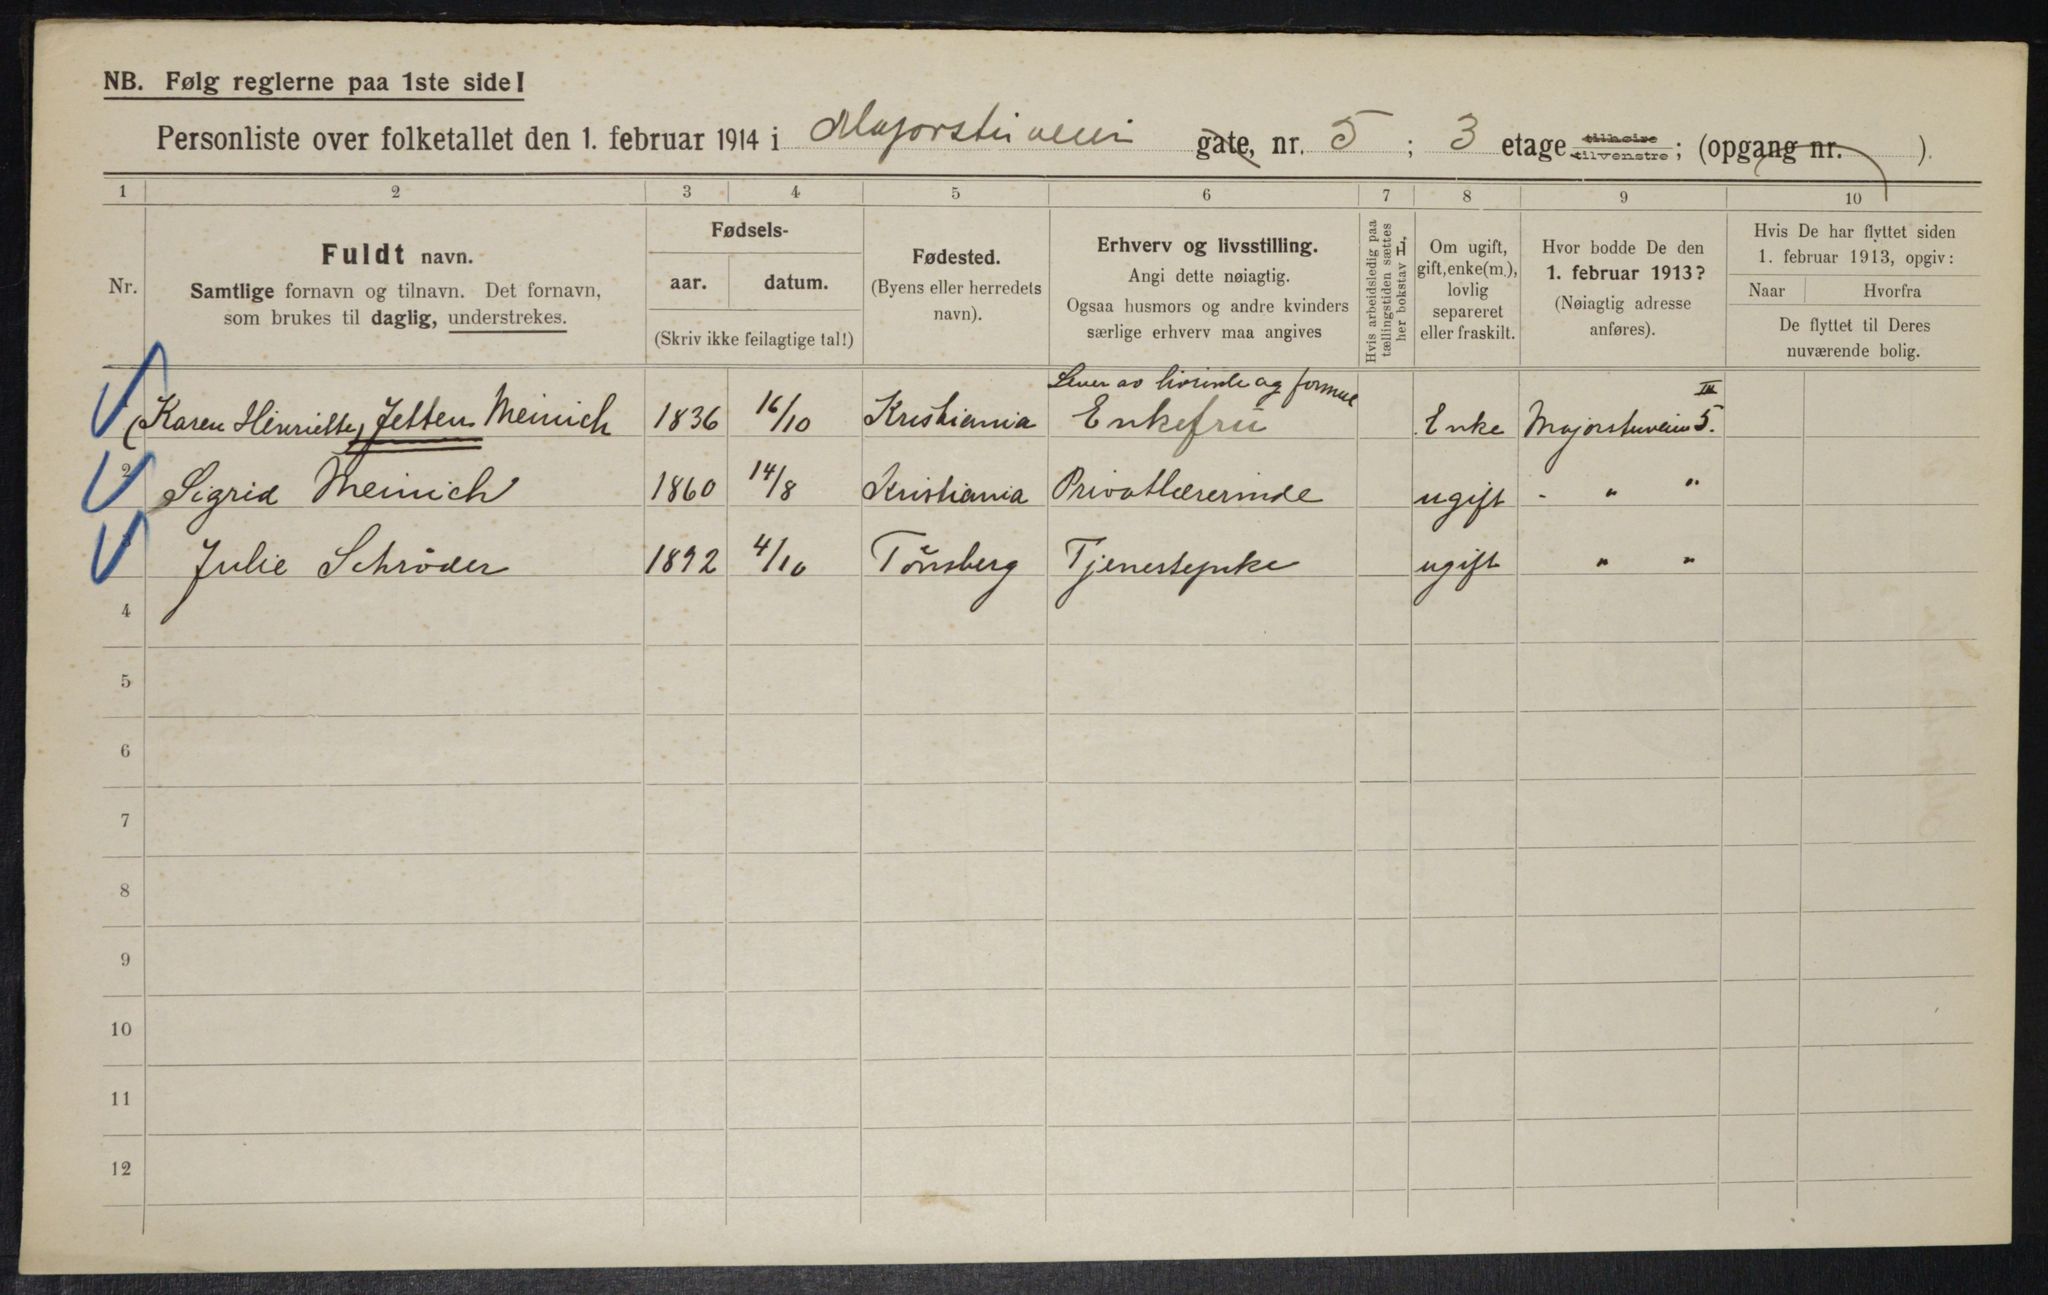 NB. Følg reglerne paa 1ste side!
Personliste over folketallet den 1. februar 1914 i Majorstuveien gate, nr. 5 ; 3 etage tilhøire tilvenstre ; (opgang nr. ).
1 2 3 4 5 6 7 8 9 10
Nr.
Fuldt navn.
Samtlige fornavn og tilnavn. Det fornavn,
som brukes til daglig, understrekes.
Fødsels-
aar. datum.
(Skriv ikke feilagtige tal!)
Fødested.
(Byens eller herredets
navn).
Erhverv og livsstilling.
Angi dette nøiagtig.
Ogsaa husmors og andre kvinders
særlige erhverv maa angives
Hvis arbeidsledig paa
tællingstiden sættes
her bokstav L.
Om ugift,
gift, enke(m.),
lovlig
separeret
eller fraskilt.
Hvor bodde De den
1. februar 1913?
(Nøiagtig adresse
anføres).
Hvis De har flyttet siden
1. februar 1913, opgiv:
Naar Hvorfra
De flyttet til Deres
nuværende bolig.
Lever av livrente og formue
(Karen Henriette) Jetten Meinich 1836 16/10 Kristiania Enkefru Enke Majorstuveien 5. III
2 Sigrid Meinich 1860 14/8 Kristiania Privatlærerinde ugift - " "
Julie Schrøder 1892 4/10 Tønsberg Tjenestepike ugift " "
4
5
6
7
8
9
10
11
12